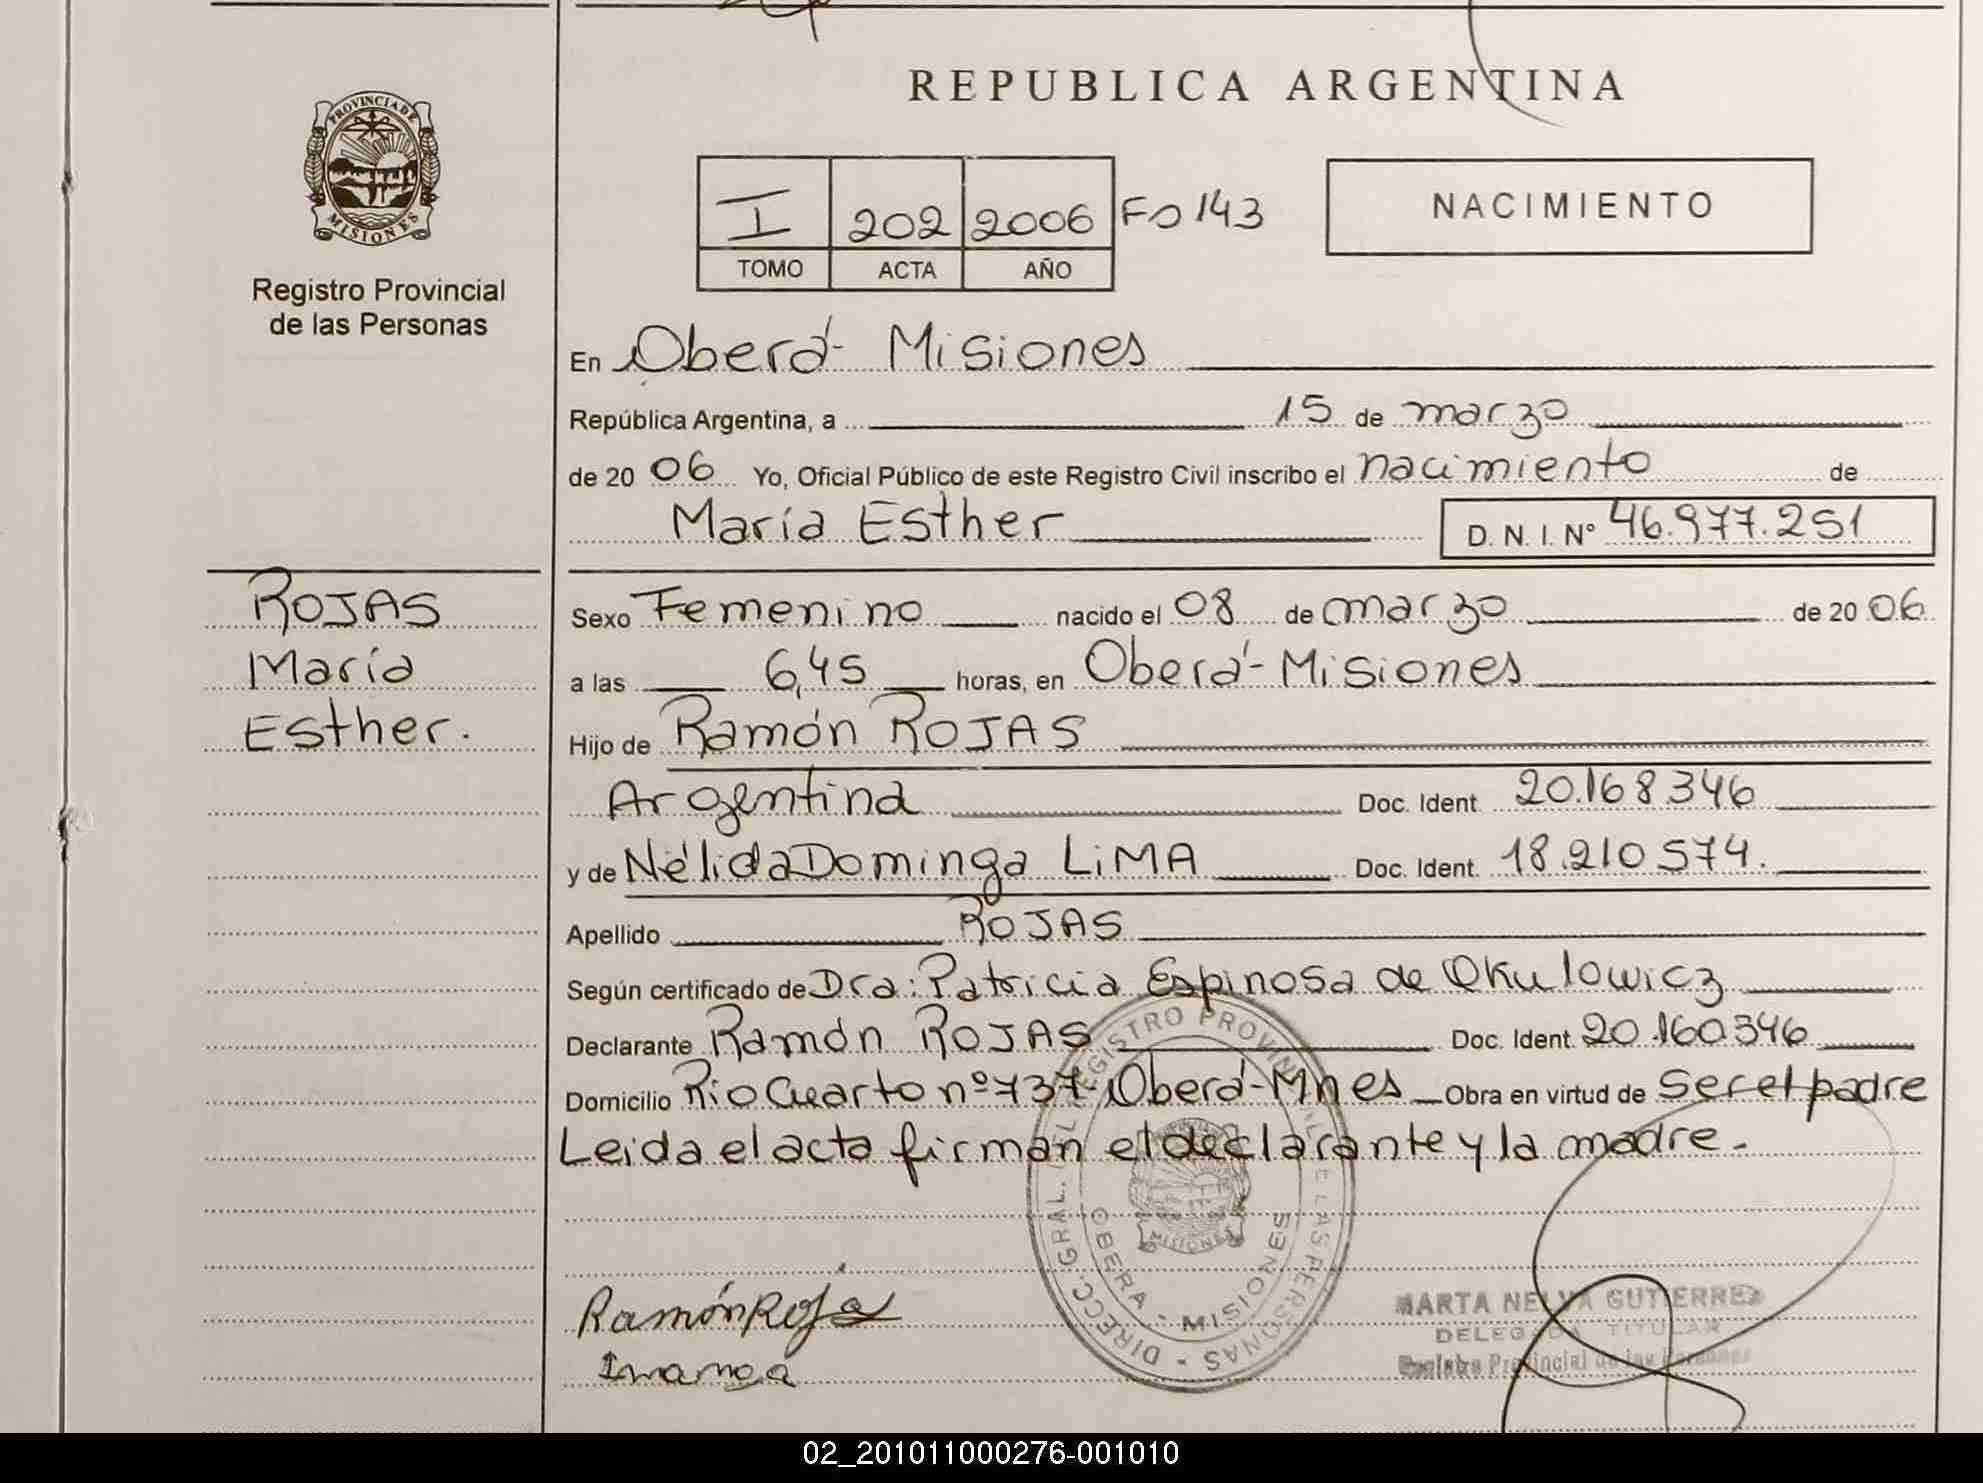 REPUBLICA ARGENTINA
PROVINCIA DE
MISIONES
Registro Provincial
de las Personas
I 202 2006 Fo 143
TOMO ACTA AÑO
NACIMIENTO
En Oberá - Misiones
República Argentina, a 15 de marzo
de 20 06 Yo, Oficial Público de este Registro Civil inscribo el nacimiento de
María Esther D. N. I. Nº 46.977.251
ROJAS
María
Esther.
Sexo Femenino nacido el 08 de marzo de 20 06
a las 6,45 horas, en Oberá - Misiones
Hijo de Ramón ROJAS
Argentina Doc. Ident. 20.168.346
y de Nélida Dominga LiMA Doc. Ident. 18.210.574.
Apellido ROJAS
Según certificado de Dra: Patricia Espinosa de Okulowicz
Declarante Ramón ROJAS Doc. Ident. 20.160346
Domicilio Rio Cuarto nº 737 - Oberá - Mnes Obra en virtud de ser el padre
Leida el acta firman el declarante y la madre.-
DIRECC. GRAL. DEL REGISTRO PROVINCIAL DE LAS PERSONAS -
OBERA - MISIONES
MISIONES
Ramón Roja
MARTA NELVA GUTIERREZ
DELEGADA TITULAR
Registro Provincial de las Personas
02_201011000276-001010